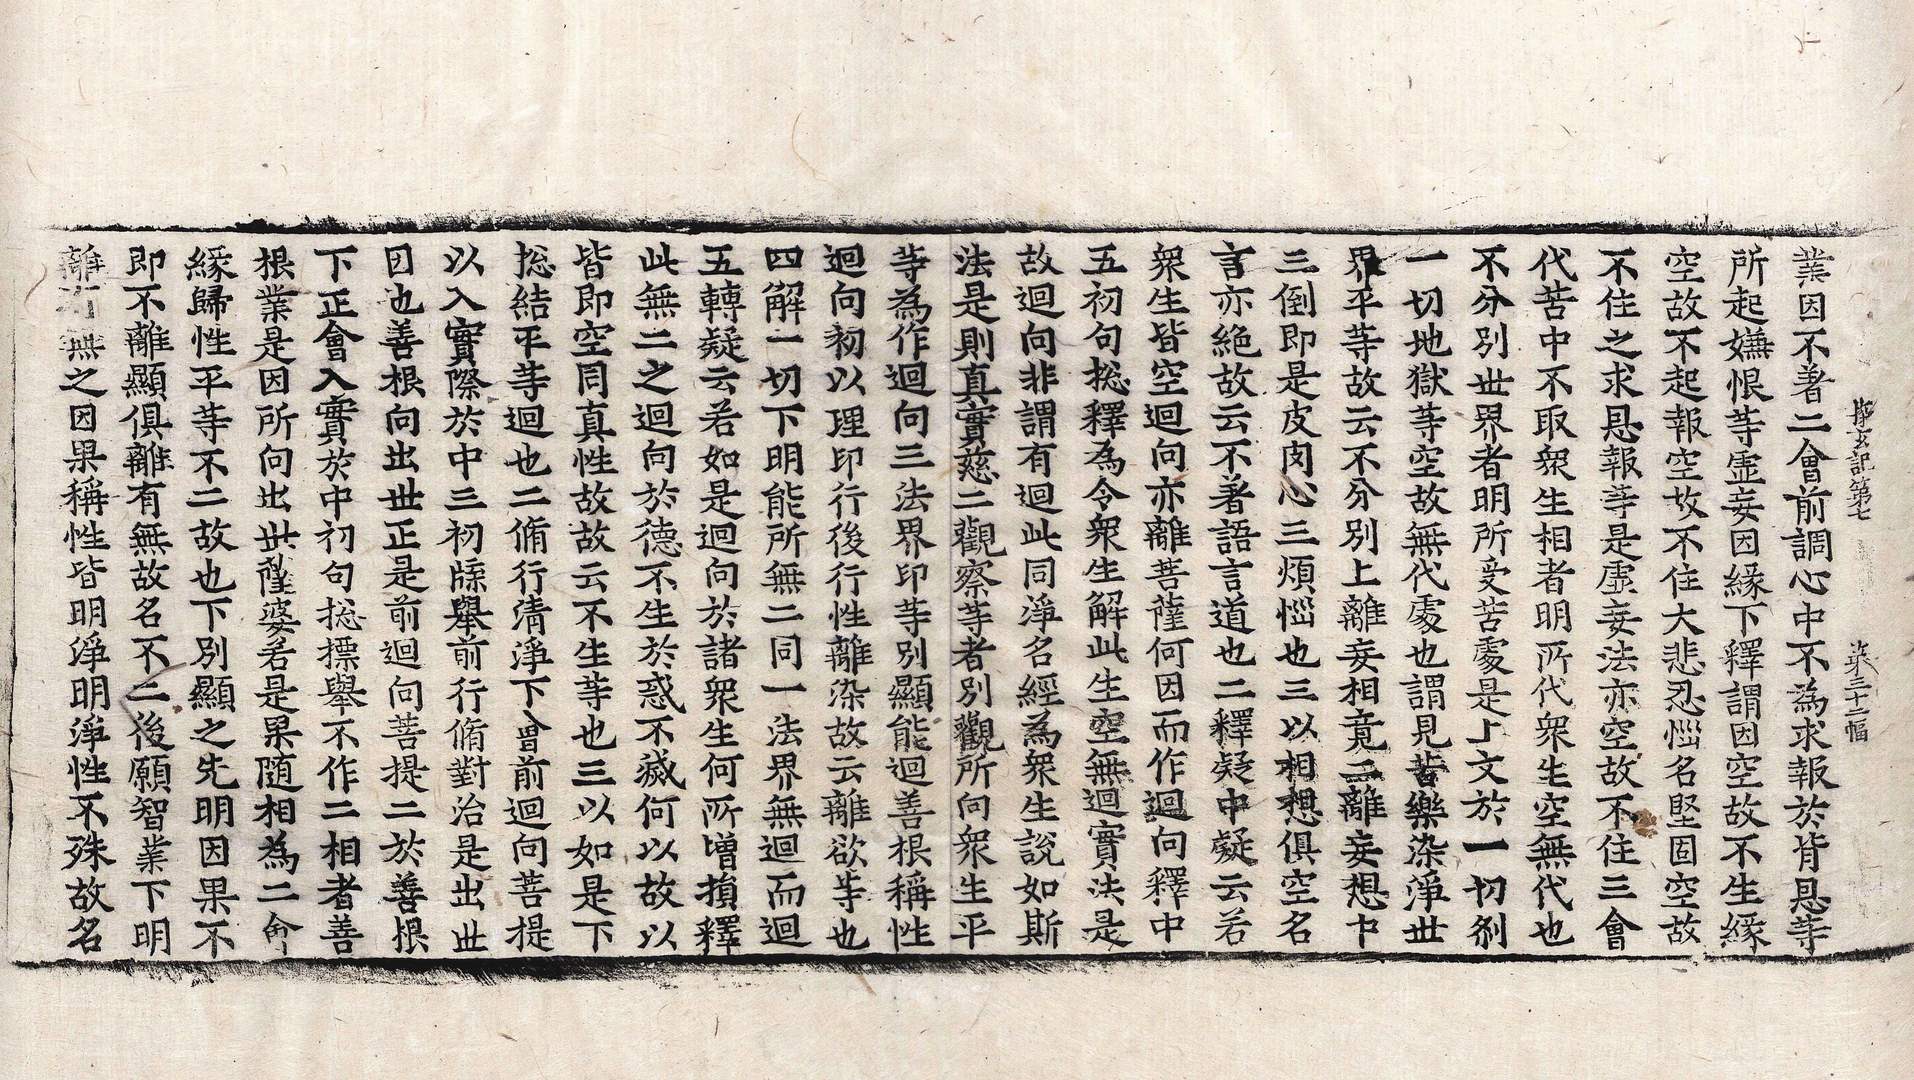 探玄記第七 染 三十二幅
業因不著二會前調心中不為求報於背恩等
所起嫌恨等虛妄因緣下釋謂因空故不生緣
空故不起報空故不住大悲忍惱名堅固空故
不住之求恩報等是虛妄法亦空故不住三會
代苦中不取衆生相者明所代衆生空無代也
不分別世界者明所受苦處是上文於一切剎
一切地獄等空故無代處也謂見苦樂染淨世
界平等故云不分別上離妄相竟二離妄想中
三倒即是皮肉心三煩惱也三以相想俱空名
言亦絶故云不著語言道也二釋疑中疑云若
衆生皆空迴向亦離菩薩何因而作迴向釋中
五初句揔釋為令衆生解此生空無迴實法是
故迴向非謂有迴此同淨名經為衆生說如斯
法是則真實慈二觀察等者別觀所向衆生平
等為作迴向三法界印等別顯能迴善根稱性
迴向初以理印行後行性離染故云離欲等也
四解一切下明能所無二同一法界無迴而迴
五轉疑云若如是迴向於諸衆生何所增損釋
此無二之迴向於德不生於惑不滅何以故以
皆即空同真性故故云不生等也三以如是下
揔結平等迴也二脩行清淨下會前迴向菩提
以入實際於中三初牒舉前行脩對治是出世
因也善根向出世正是前迴向菩提二於善根
下正會入實於中初句揔摽舉不作二相者善
根業是因所向出世薩婆若是果随相為二會
緣歸性平等不二故也下別顯之先明因果不
即不離顯俱離有無故名不二後願智業下明
離有無之因果稱性皆明淨明淨性不殊故名